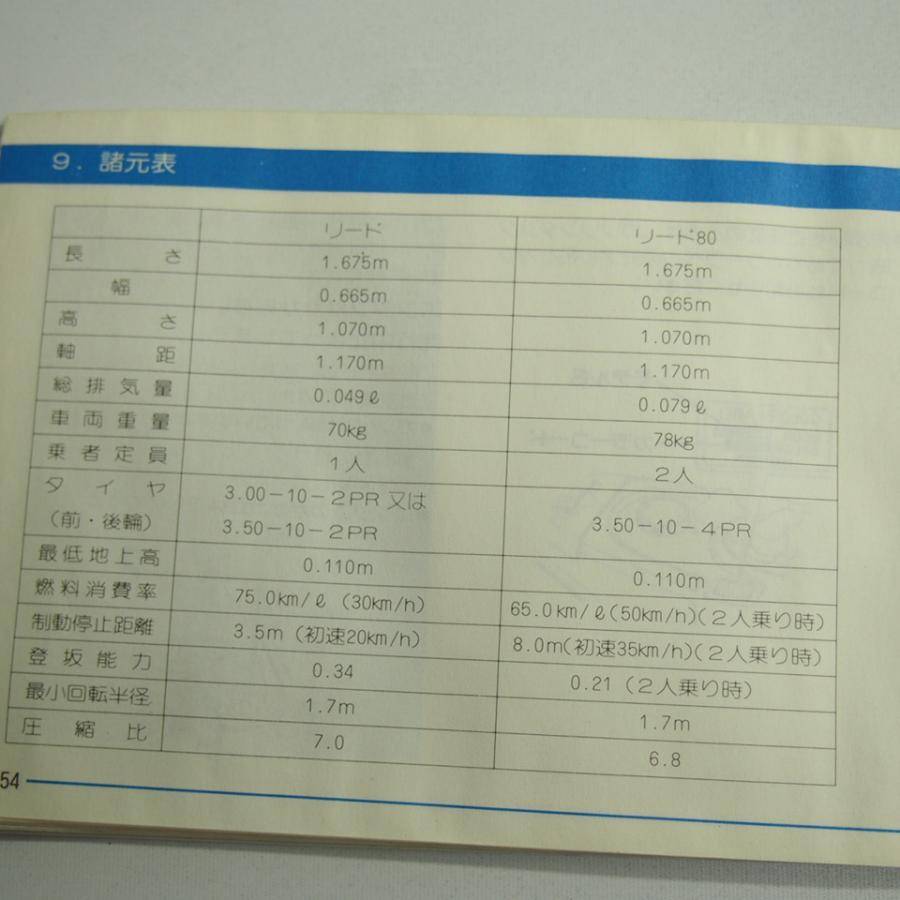 9. 諸元表
リード リード80
長さ 1.675m 1.675m
幅 0.665m 0.665m
高さ 1.070m 1.070m
軸距 1.170m 1.170m
総排気量 0.049ℓ 0.079ℓ
車両重量 70kg 78kg
乗者定員 1人 2人
タイヤ 3.00-10-2PR 又は
(前・後輪) 3.50-10-2PR 3.50-10-4PR
最低地上高 0.110m 0.110m
燃料消費率 75.0km/ℓ (30km/h) 65.0km/ℓ(50km/h)(2人乗り時)
制動停止距離 3.5m (初速20km/h) 8.0m(初速35km/h)(2人乗り時)
登坂能力 0.34 0.21 (2人乗り時)
最小回転半径 1.7m 1.7m
圧縮比 7.0 6.8
54